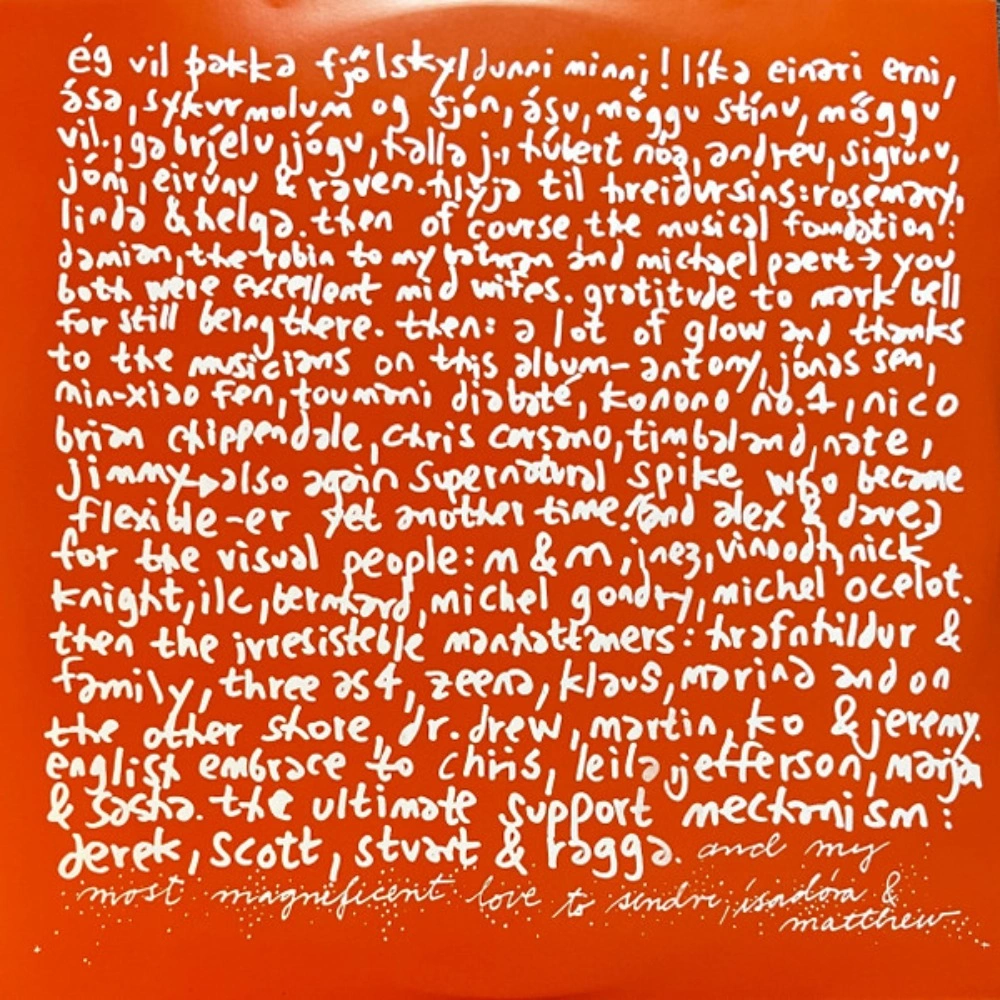 ég vil þakka fjölskyldunni minni! líka einari erni,
ása, sykurmolum og sjón, ásu, möggu stínu, möggu
vil., gabríelu, jógu, halla j., húbert nóa, andreu, sigrúnu,
jóni, eirúnu & raven. hlýja til hreidursins: rosemary,
linda & helga. then of course the musical foundation:
damian, the robin to my batman and michael paert → you
both were excellent mid wifes. gratitude to mark bell
for still being there. then: a lot of glow and thanks
to the musicians on this album- antony, jónas sen,
min-xiao fen, toumani diabaté, konono no.1, nico
brian chippendale, chris corsano, timbaland, nate,
jimmy → also again supernatural spike who became
flexible-er yet another time. (and alex & dave)
for the visual people: m & m, inez, vinoodh, nick
knight, ilc, bernhard, michel gondry, michel ocelot.
then the irresisteble manhattaners: hrafnhildur &
family, three as 4, zeena, klaus, marina and on
the other shore, dr. drew, martin, ko & jeremy.
english embrace to chris, leila, jefferson, marja
& sasha. the ultimate support mechanism:
derek, scott, stuart & ragga. and my
most magnificent love to sindri, ísadóra &
matthew